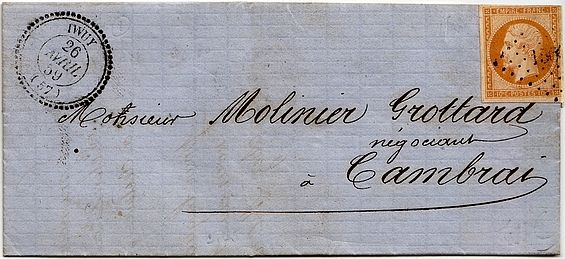 IWUY
26
AVRIL
59
(57)
EMPIRE FRANC
10 C. POSTES 10 C.
Monsieur Molinier Grottard
négociant
à Cambrai